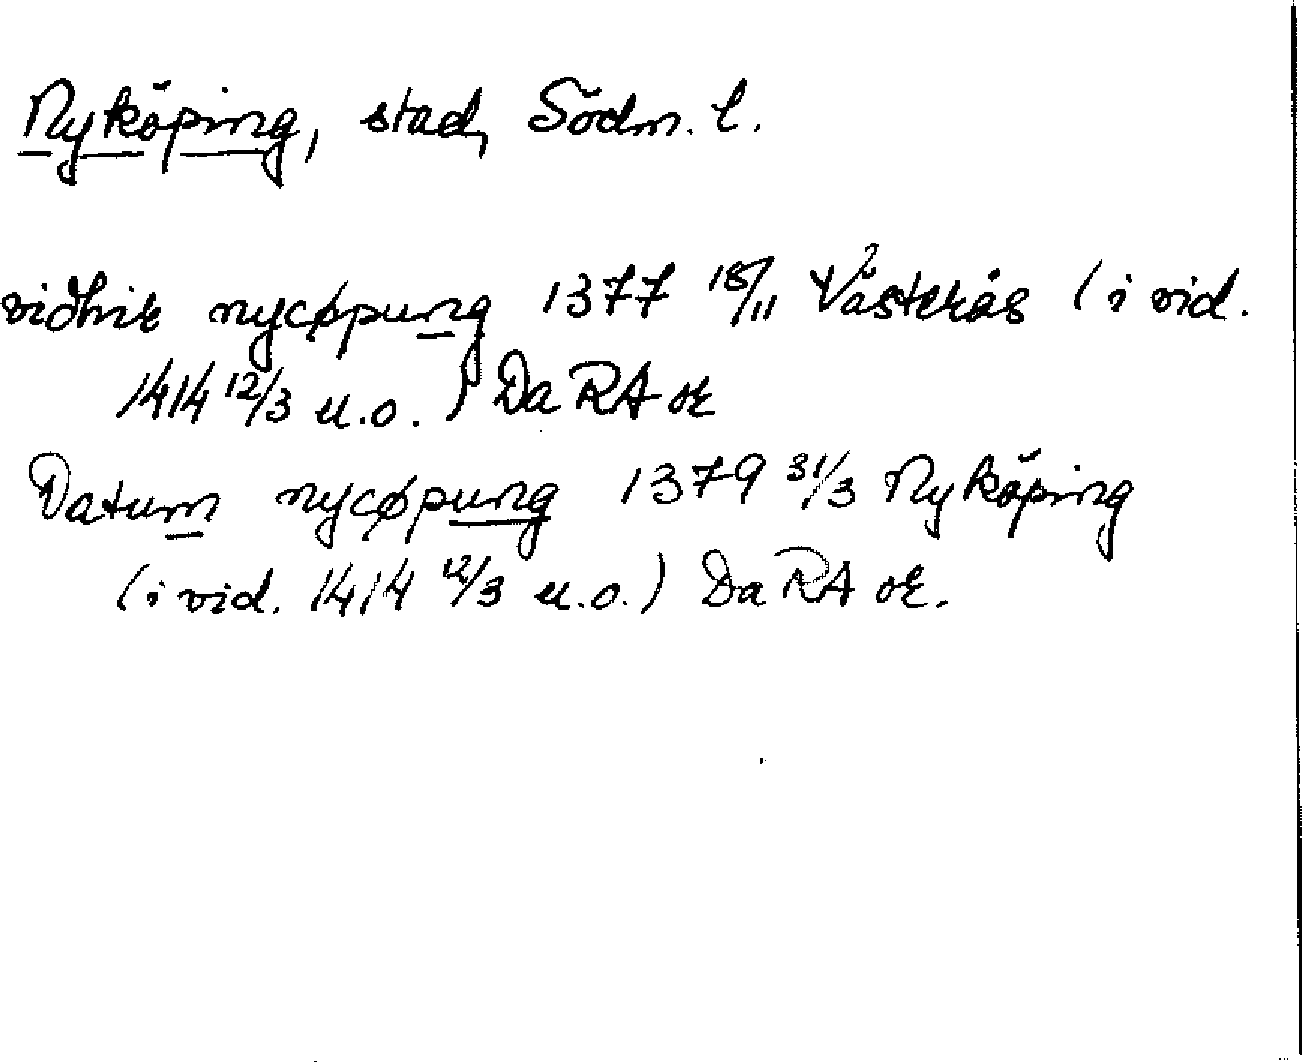 Nyköping, stad, Södm. l.
viðhik nycøpung 1377 18/11 Västerås (i vid.
1414 12/3 u.o.) Da RA or
Datum nycøpung 1379 31/3 Nyköping
(i vid. 1414 12/3 u.o.) Da RA or.